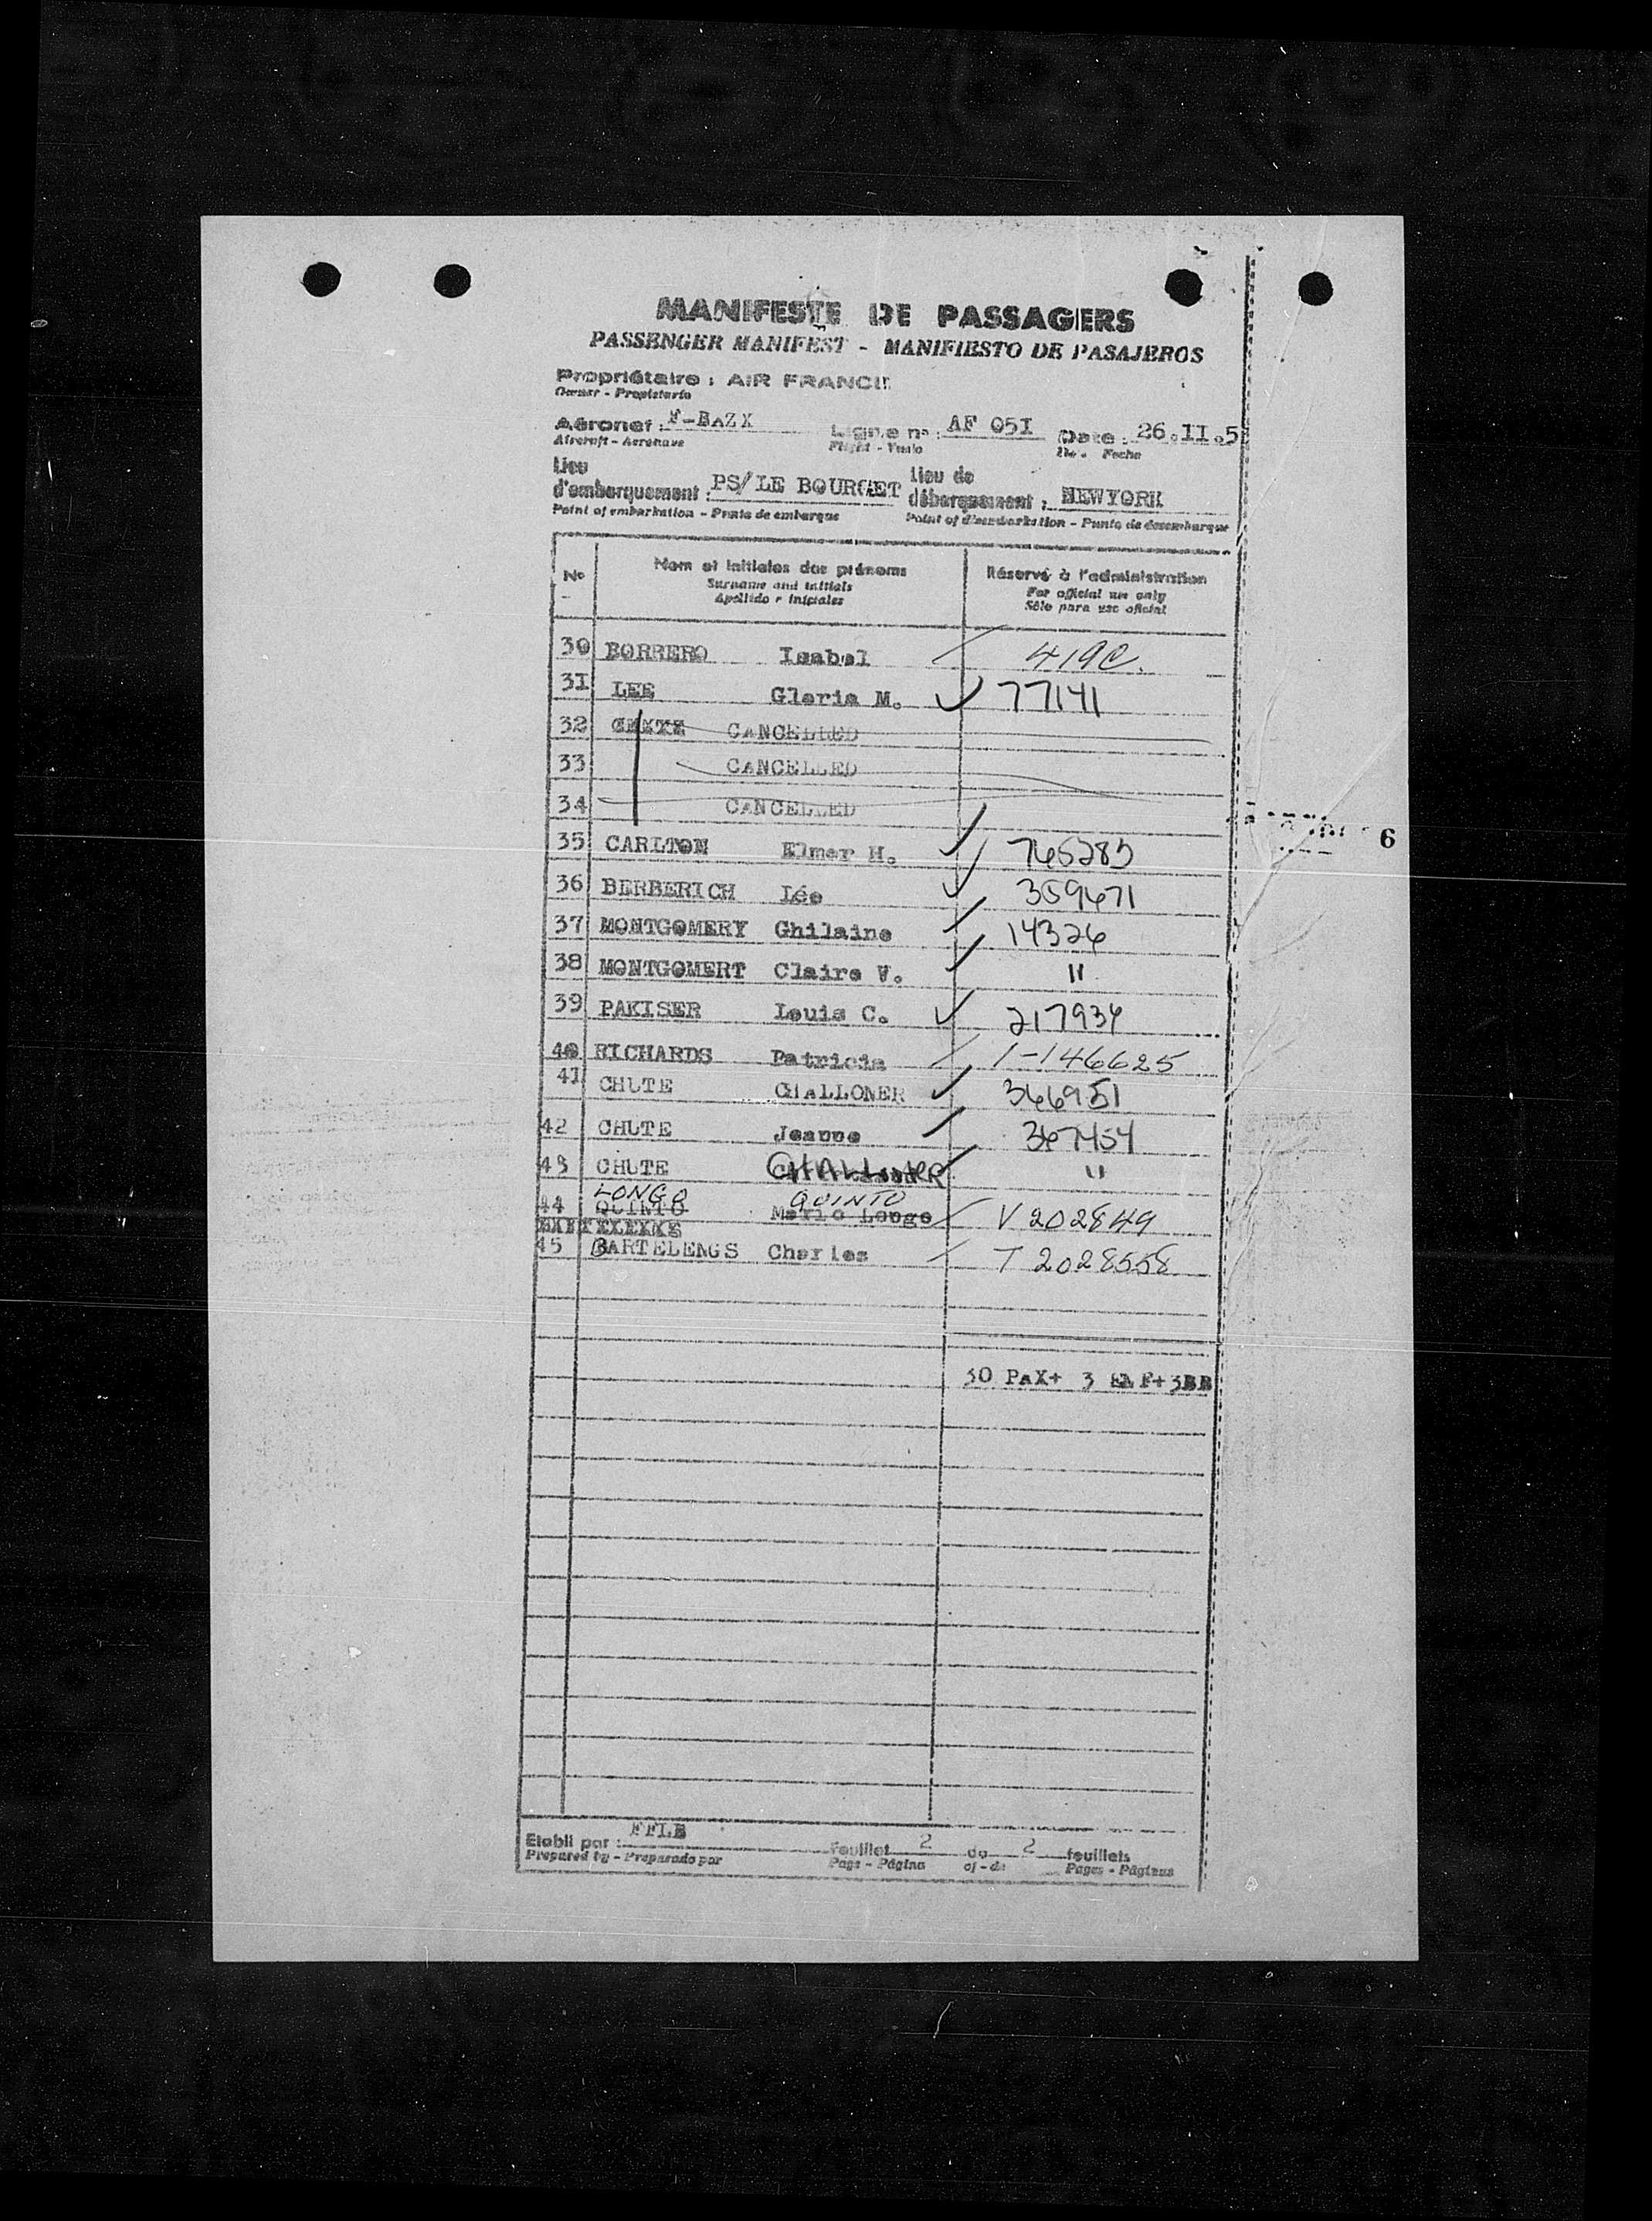 MANIFESTE DE PASSAGERS
PASSENGER MANIFEST - MANIFIESTO DE PASAJEROS
Propriétaire : AIR FRANCE
Owner - Propietario
Aéronef : F-BAZX Ligne n° : AF 05I Date : 26.II.5
Aircraft - Aeronave Flight - Vuelo Fecha
Lieu d'embarquement : PS/LE BOURGET Lieu de débarquement : NEWYORK
Point of embarkation - Punto de embarque Point of disembarkation - Punto de desembarque
N° Nom et initiales des prénoms Réservé à l'administration
Surname and initials For official use only
Apellido e iniciales Sólo para uso oficial
30 BORRERO Isabel 419C.
3I LEE Gloria M. 77141
32 CANCELLED
33 CANCELLED
34 CANCELLED
35 CARLTON Elmer H. 765283
36 BERBERICH Lée 359671
37 MONTGOMERY Ghilaine 14326
38 MONTGOMERT Claire V. "
39 PAKISER Louis C. 217934
40 RICHARDS Patricia 1-146625
41 CHUTE CHALLONER 366951
42 CHUTE Jeanne 367454
43 CHUTE CHALLONER "
LONGO QUINTO
44 QUINTO Mario Longo V 202849
45 BARTELENGS Charles T 2028558
30 PAX+ 3 ENF+3BB
6
Etabli par : FFLB Feuillet 2 de 2 feuillets
Prepared by - Preparado por Page - Página of - de Pages - Páginas